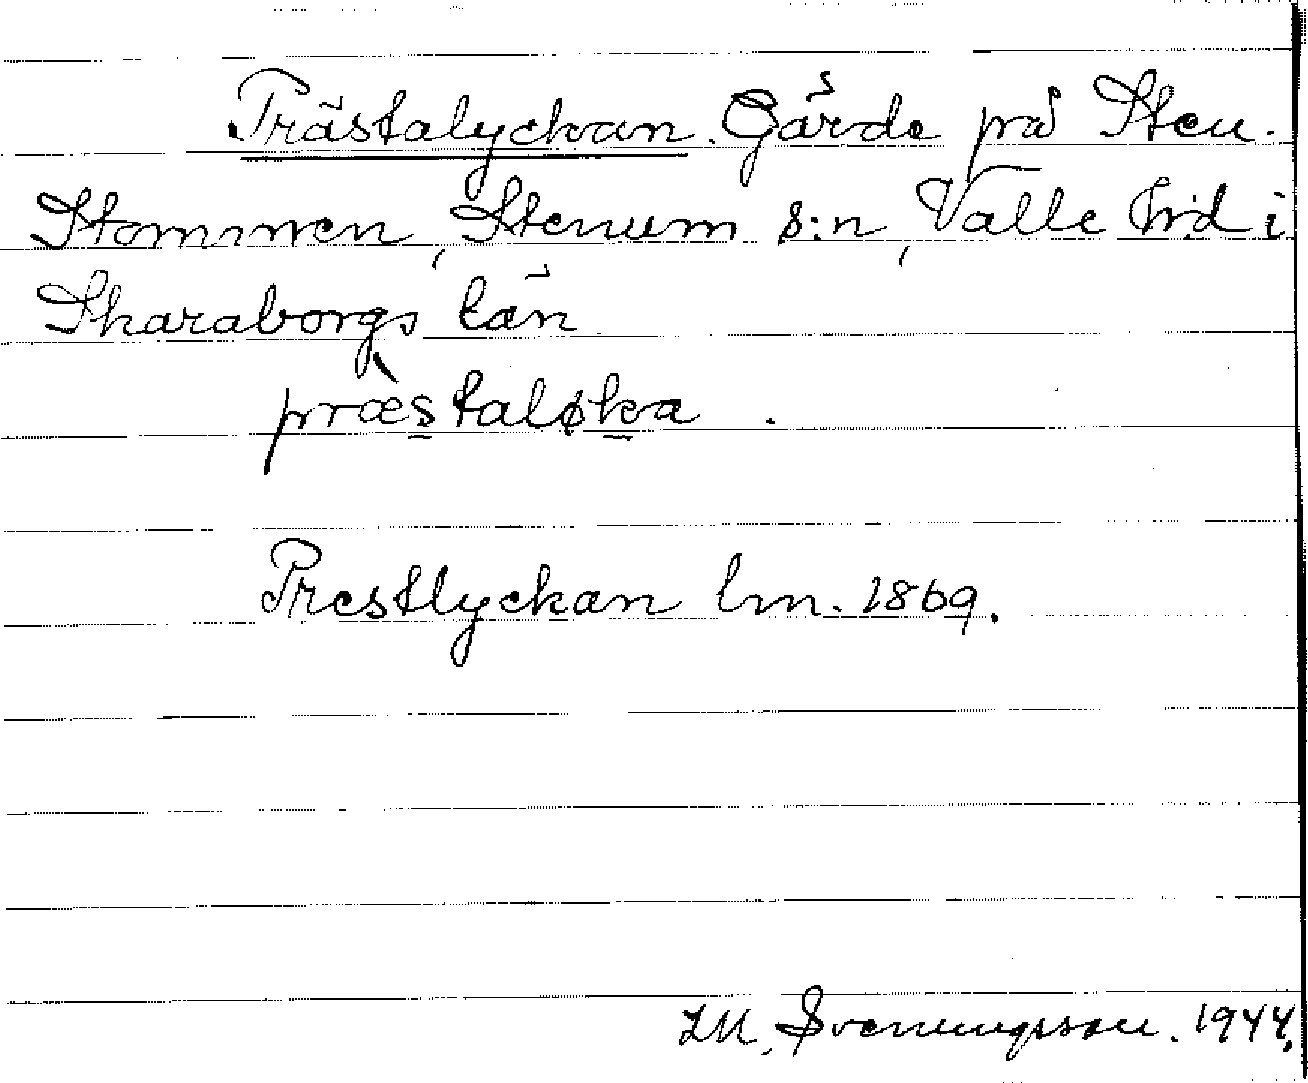 Prästalyckan. Gärde på Sten.
Stommen, Stenum s:n, Valle h:d i
Skaraborgs län
præ̀staløka.
Prestlyckan lm. 1869.
I.M. Svenungsson. 1944.